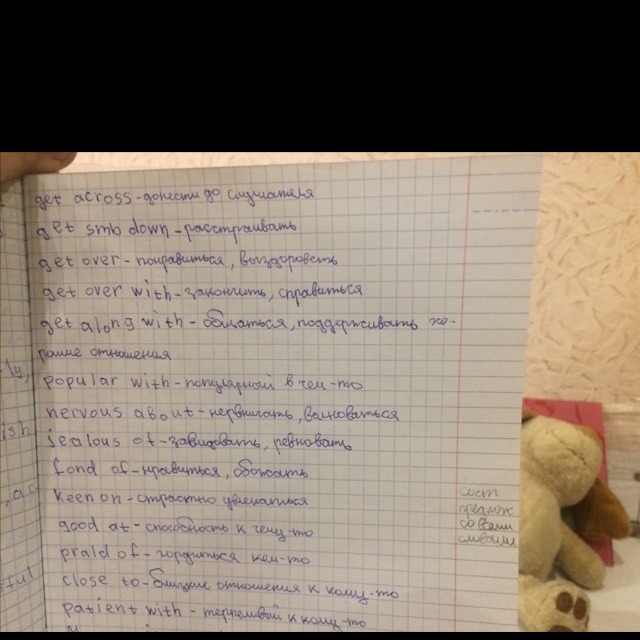 get across - донести до слушателя
get smb down - расстраивать
get over - поправиться, выздороветь
get over with - закончить, справиться
get along with - общаться, поддерживать хо-
рошие отношения
popular with - популярный в чем-то
nervous about - нервничать, волноваться
jealous of - завидовать, ревновать
fond of - нравиться, обожать
keen on - страстно увлекаться
good at - способность к чему-то
prald of - гордиться кем-то
close to - близкие отношения к кому-то
patient with - терпеливый к кому-то
сост
предлож
со всеми
словами
ly,
ish